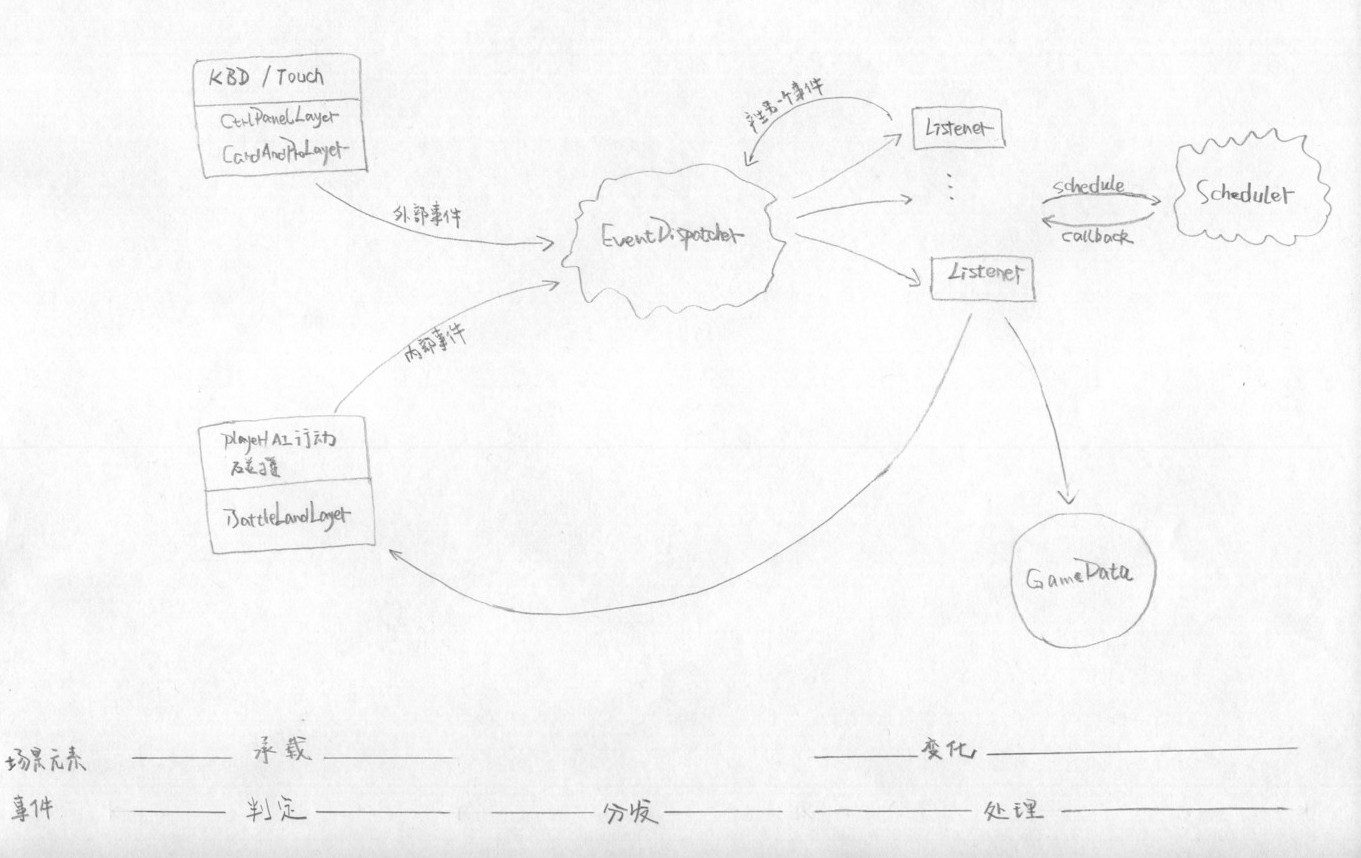 KBD / Touch
CtrlPanelLayer
CardAndProLayer
外部事件
EventDispatcher
产生另一个事件
Listener
schedule
callback
Scheduler
Listener
内部事件
player/AI行动
BattleLandLayer
GameData
场景元素 承载 变化
事件 判定 分发 处理